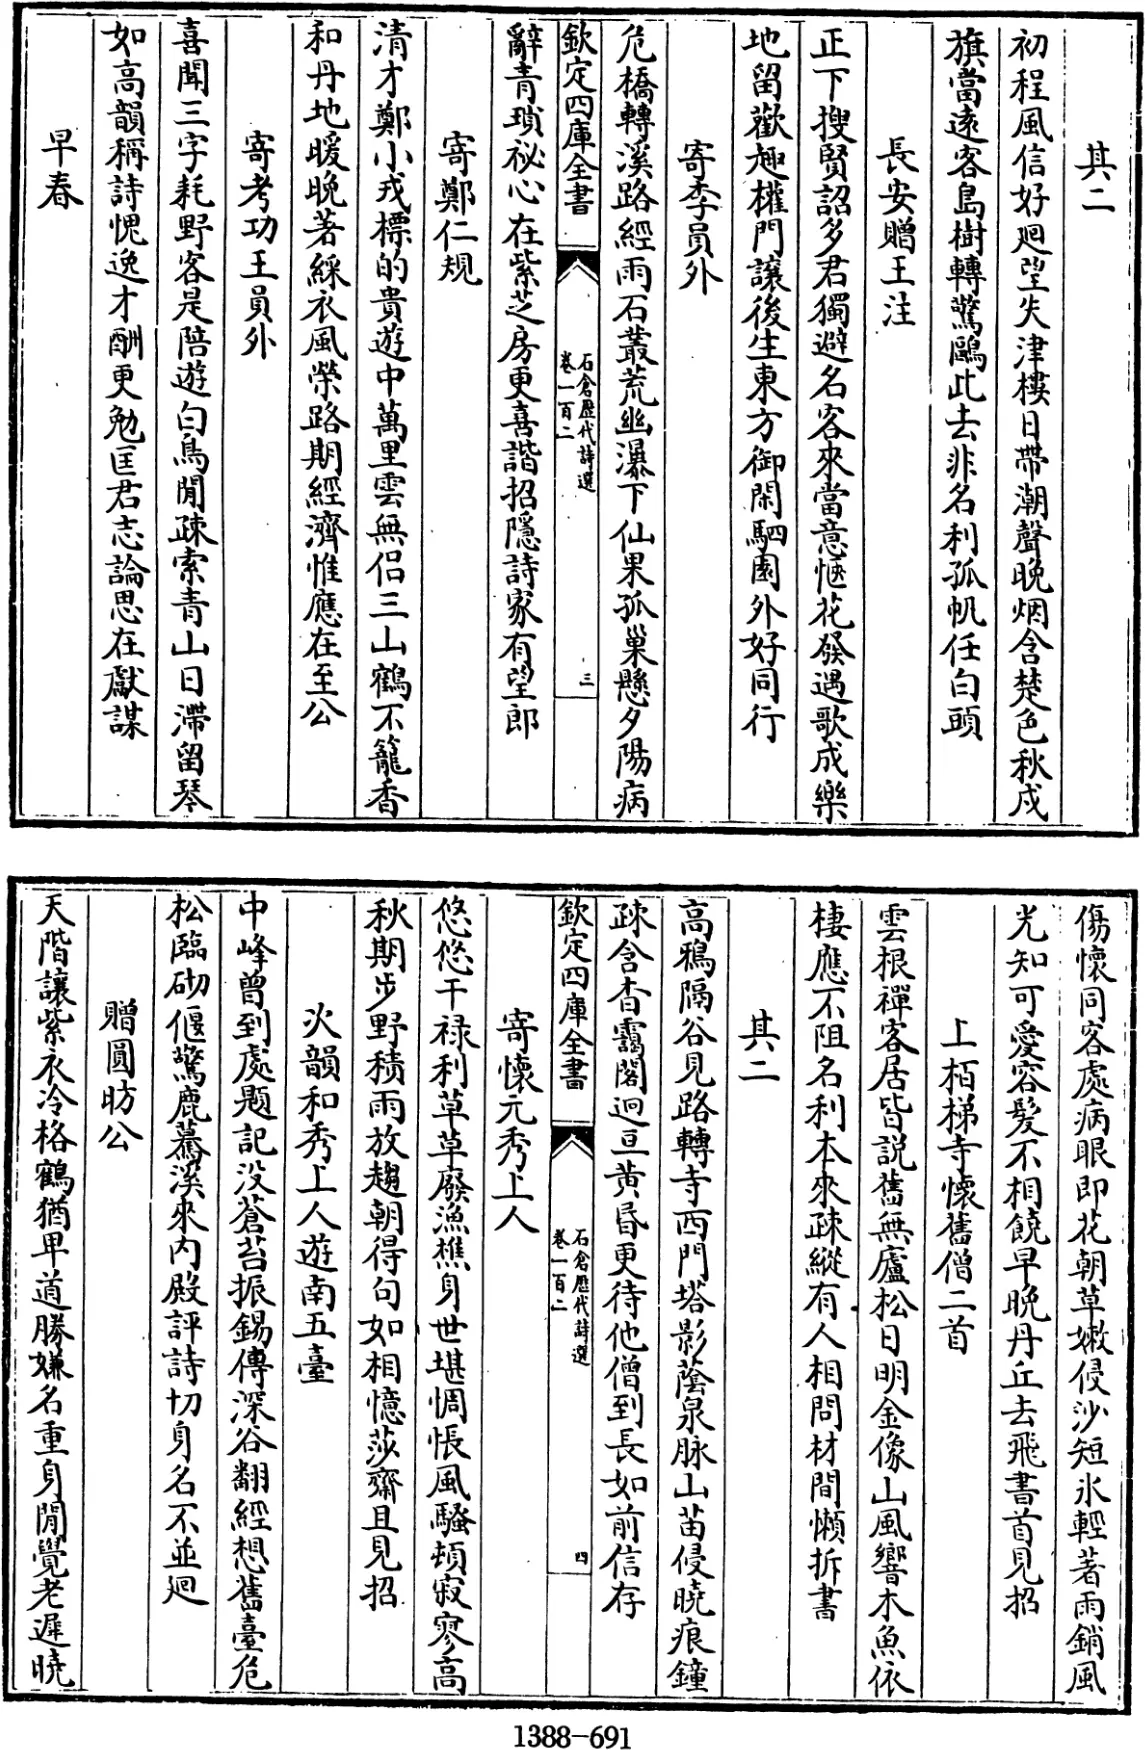 其二
初程風信好廻望失津樓日帶潮聲晚烟含楚色秋戍
旗當遠客島樹轉驚鷗此去非名利孤帆任白頭
長安贈王注
正下搜賢詔多君獨避名客來當意愜花發遇歌成樂
地留歡趣權門讓後生東方御閑駟園外好同行
寄李員外
危橋轉溪路經雨石叢荒幽瀑下仙果孤巢懸夕陽病
欽定四庫全書
石倉歷代詩選
卷一百二
三
辭青瑣祕心在紫芝房更喜諧招隱詩家有望郎
寄鄭仁規
清才鄭小戎標的貴遊中萬里雲無侣三山鶴不籠香
和丹地暖晚著綵衣風榮路期經濟惟應在至公
寄考功王員外
喜聞三字耗野客是陪遊白鳥閒疎索青山日滯留琴
如高韻稱詩愧逸才酬更勉匡君志論思在獻謀
早春
傷懷同客處病眼即花朝草嫩侵沙短氷輕著雨銷風
光知可愛容髮不相饒早晚丹丘去飛書首見招
上栢梯寺懷舊僧二首
雲根禪客居皆説舊無廬松日明金像山風響木魚依
棲應不阻名利本來疎縱有人相問材間懶拆書
其二
高鴉隔谷見路轉寺西門塔影蔭泉脉山苗侵曉痕鐘
疎含杳靄閣迥亘黄昏更待他僧到長如前信存
欽定四庫全書
石倉歷代詩選
卷一百二
四
寄懷元秀上人
悠悠干禄利草草廢漁樵身世堪惆悵風騷頓寂寥高
秋期步野積雨放趨朝得句如相憶莎齋且見招
次韻和秀上人遊南五臺
中峰曾到處題記没蒼苔振錫傳深谷翻經想舊臺危
松臨砌偃驚鹿驀溪來内殿評詩切身名不並廻
贈圓昉公
天階讓紫衣冷格鶴猶卑道勝嫌名重身閒覺老遲曉
1388-691